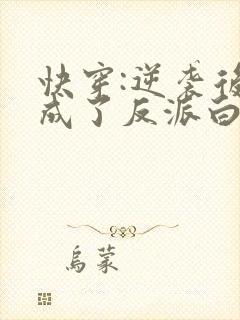 快穿:逆袭後
成了反派白
烏蒙